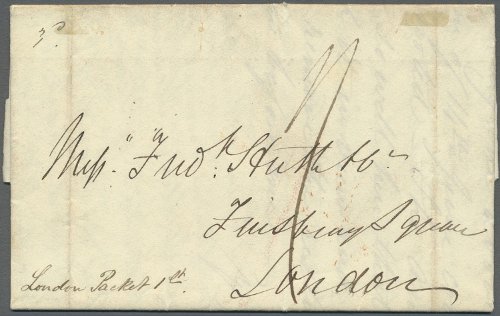 Mess.rs Fred.k Huth & Co
Finsbury Square
London
London Packet